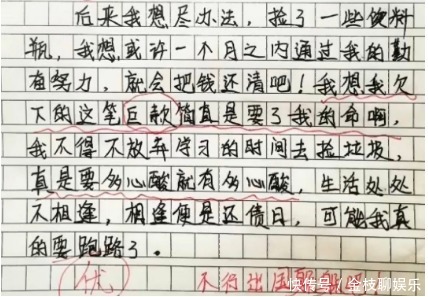 后来我想尽办法，捡了一些饮料
瓶，我想或许一个月之内通过我的勤
奋努力，就会把钱还清吧！我想我欠
下的这笔巨款简直是要了我的命啊，
我不得不放弃学习的时间去捡垃圾，
真是要多心酸就有多心酸，生活处处
不相逢，相逢便是还债日，可能我真
的要跑路了。
优
不行出国
快传号/金枝聊娱乐